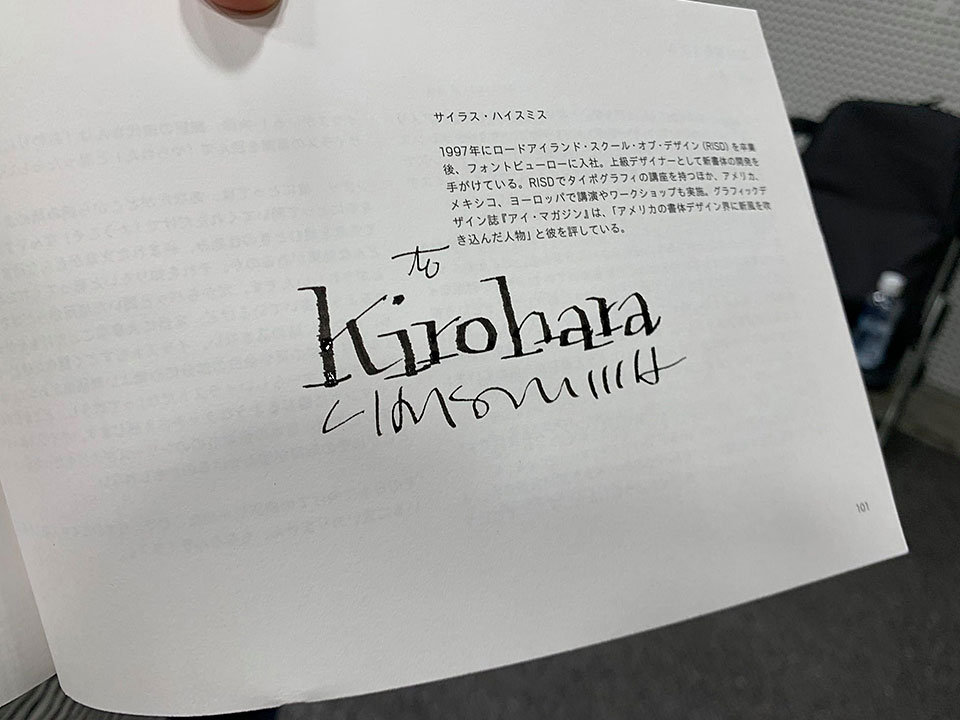 サイラス・ハイスミス
1997年にロードアイランド・スクール・オブ・デザイン(RISD)を卒業
後、フォントビューローに入社。上級デザイナーとして新書体の開発を
手がけている。RISDでタイポグラフィの講座を持つほか、アメリカ、
メキシコ、ヨーロッパで講演やワークショップも実施。グラフィックデ
ザイン誌『アイ・マガジン』は、「アメリカの書体デザイン界に新風を吹
き込んだ人物」と彼を評している。
to
Kirohara
101